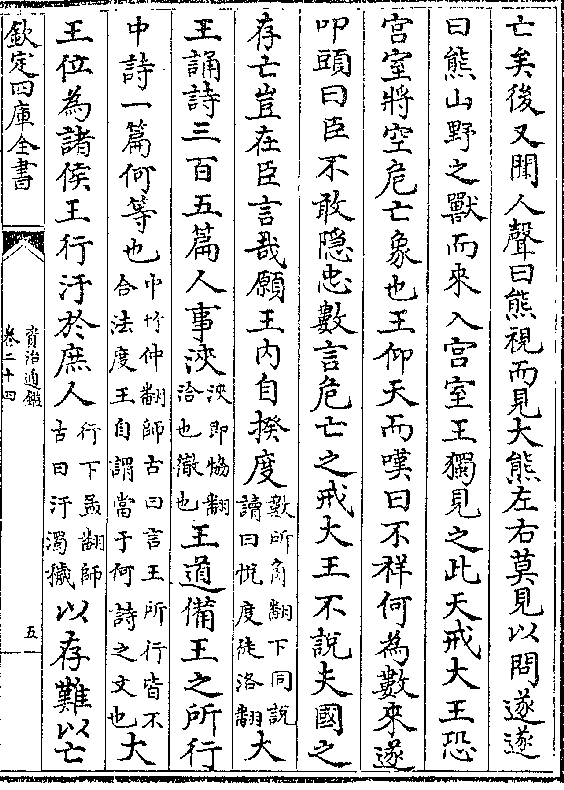 亡矣後又聞人聲曰熊視而見大熊左右莫見以問遂遂
曰熊山野之獸而来入宫室王獨見之此天戒大王恐
宫室將空危亡象也王仰天而嘆曰不祥何為數來遂
叩頭曰臣不敢隱忠數言危亡之戒大王不說夫國之
存亡豈在臣言哉願王内自揆度數所角翻下同說讀曰悅度徒洛翻大
王誦詩三百五篇人事浹浹即恊翻洽也徹也王道備王之所行
中詩一篇何等也中竹仲翻師古曰言王所行皆不合法度王自謂當于何詩之文也大
王位為諸侯王行汙於庶人行下孟翻師古曰汙濁穢以存難以亡
欽定四庫全書
資治通鑑
卷二十四
五